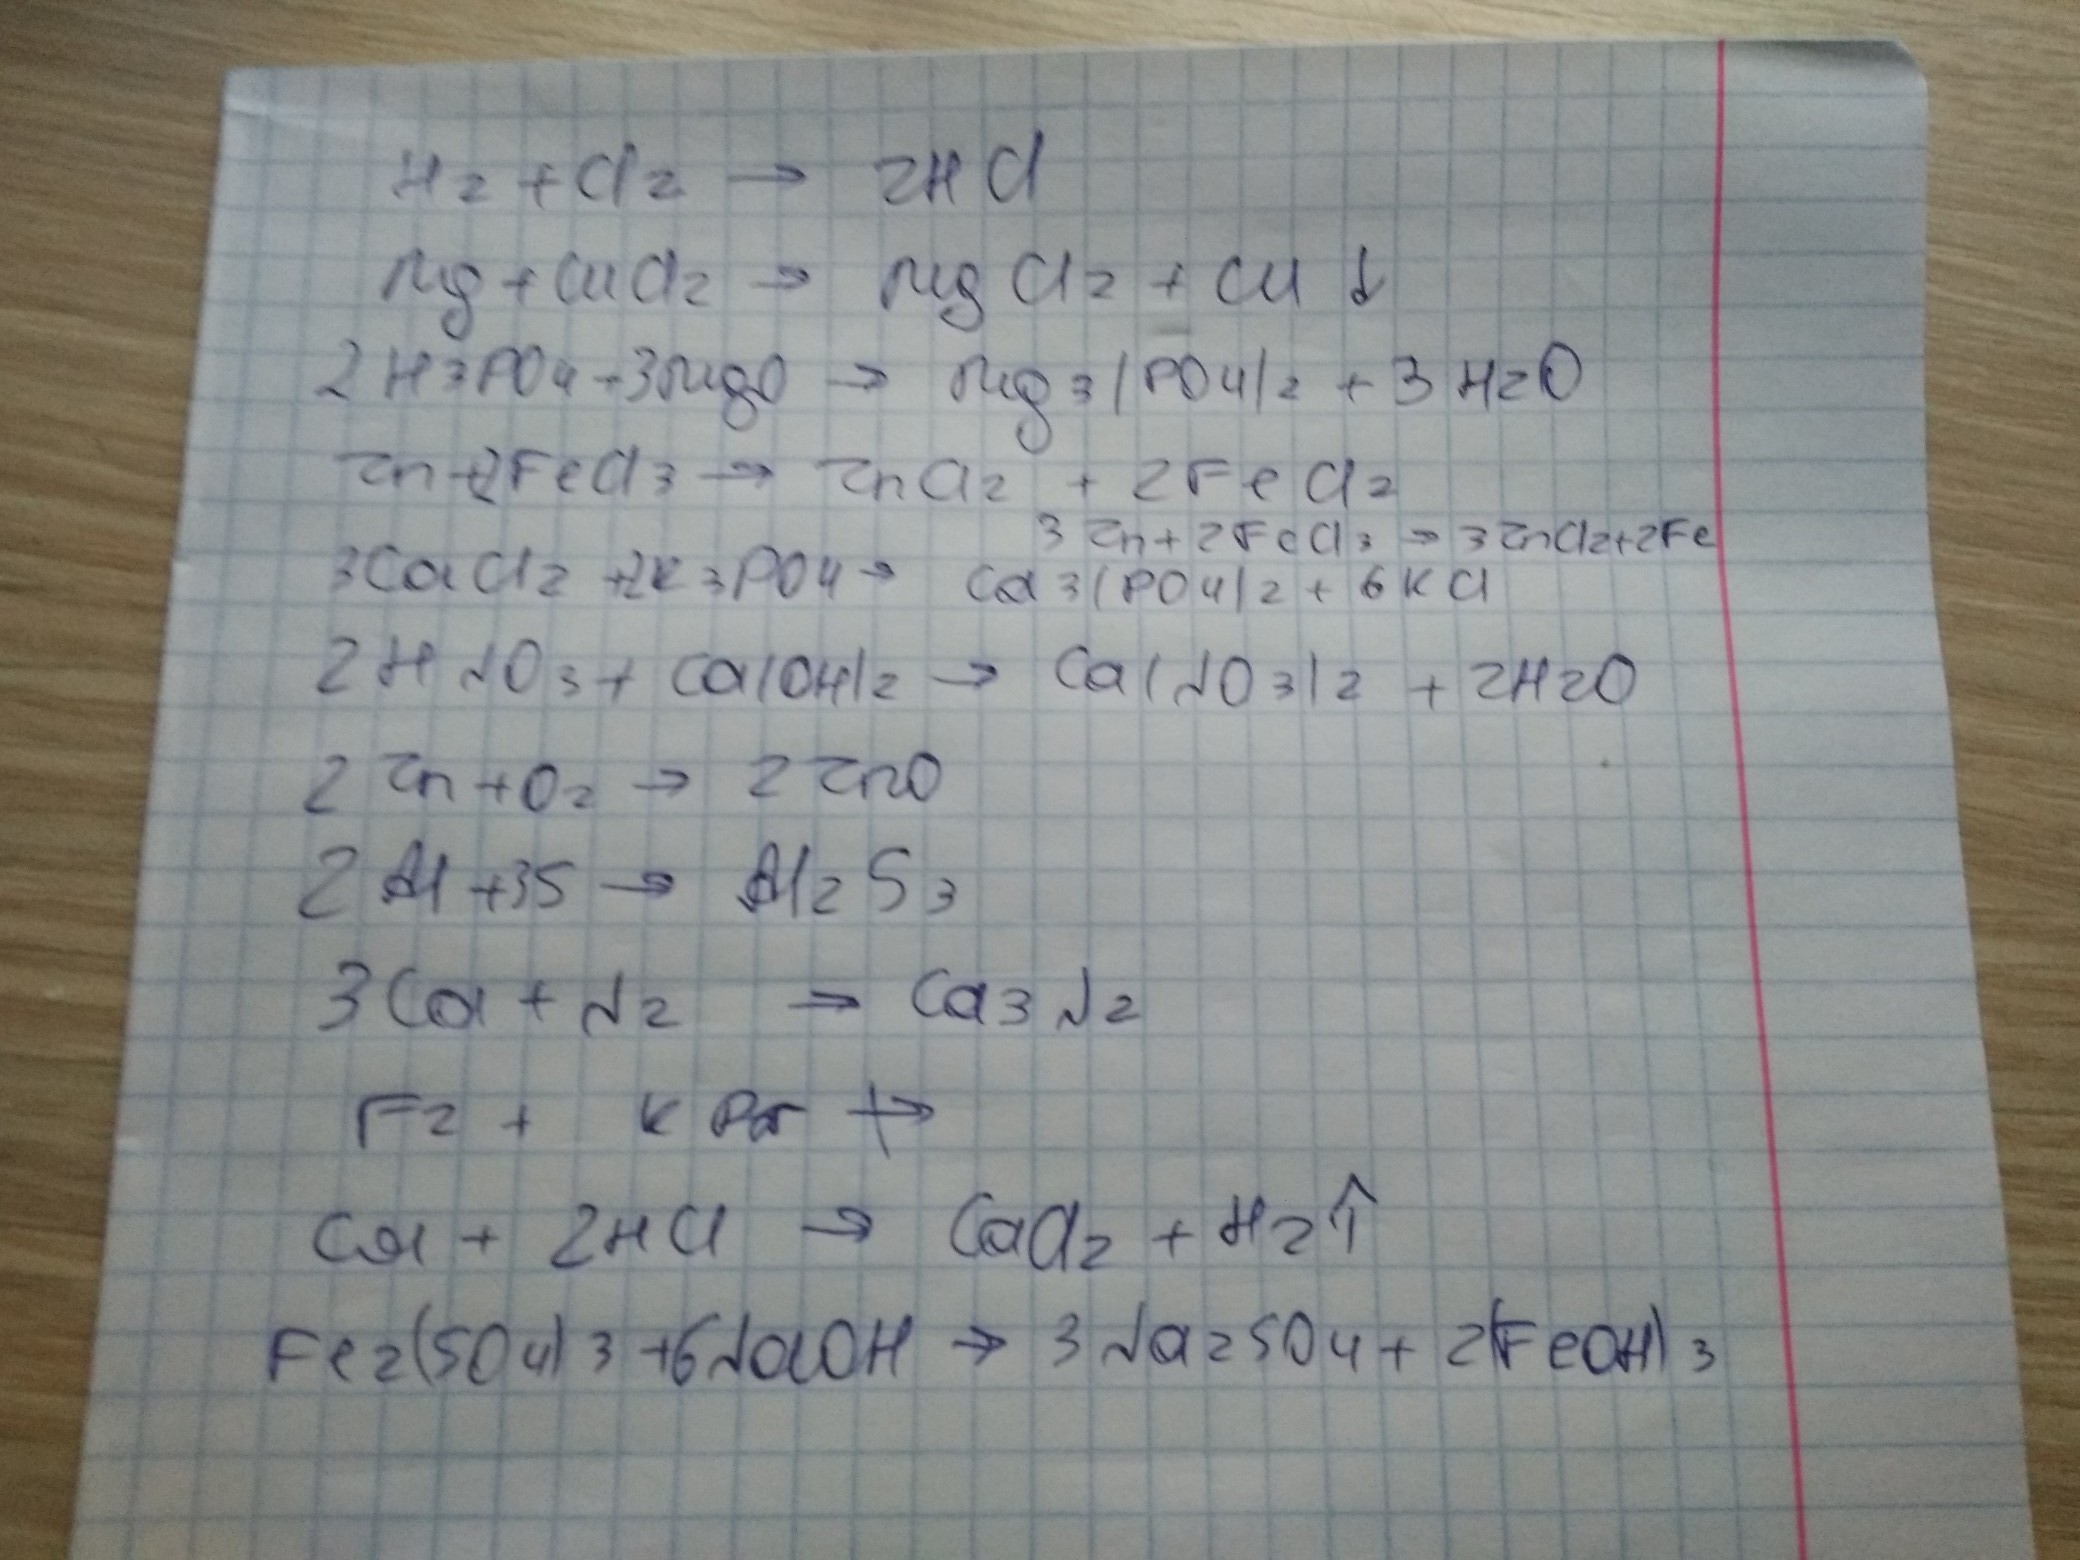 H2 + Cl2 → 2HCl
Mg + CuCl2 → MgCl2 + Cu ↓
2H3PO4 + 3MgO → Mg3(PO4)2 + 3H2O
Zn + 2FeCl3 → ZnCl2 + 2FeCl2
3Zn + 2FeCl3 → 3ZnCl2 + 2Fe
3CaCl2 + 2K3PO4 → Ca3(PO4)2 + 6KCl
2HNO3 + Ca(OH)2 → Ca(NO3)2 + 2H2O
2Zn + O2 → 2ZnO
2Al + 3S → Al2S3
3Ca + N2 → Ca3N2
F2 + K ↛
Ca + 2HCl → CaCl2 + H2↑
Fe2(SO4)3 + 6NaOH → 3Na2SO4 + 2(FeOH)3